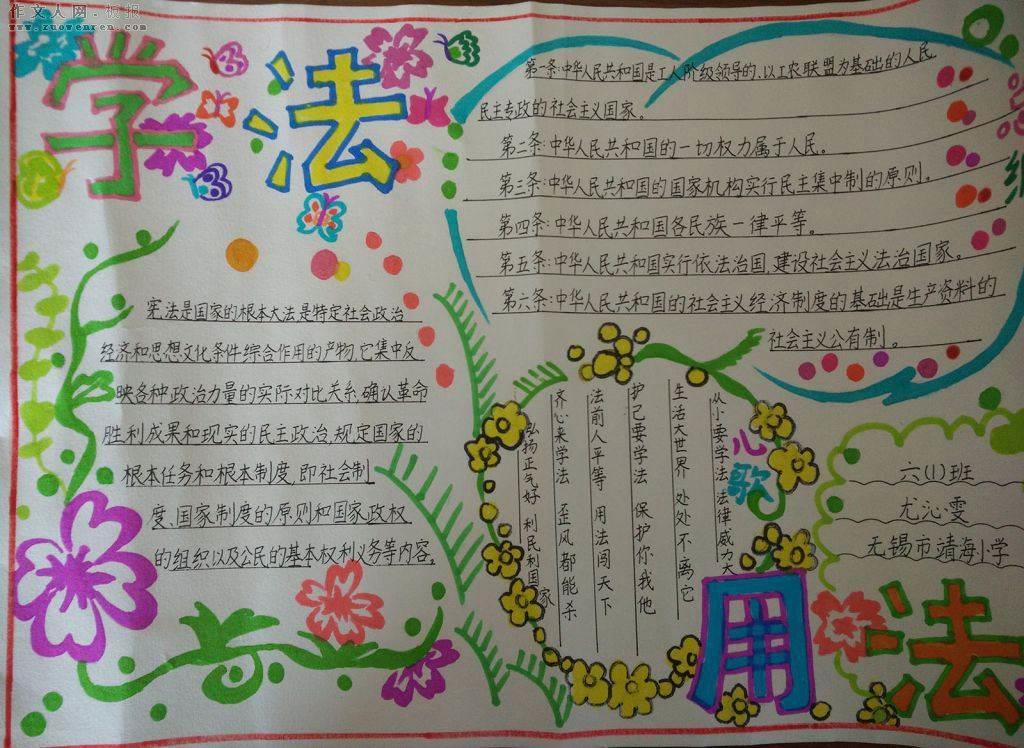 作文人网·板报
www.zuowenren.com
学法
第一条:中华人民共和国是工人阶级领导的、以工农联盟为基础的人民
民主专政的社会主义国家。
第二条:中华人民共和国的一切权力属于人民。
第三条:中华人民共和国的国家机构实行民主集中制的原则。
第四条:中华人民共和国各民族一律平等。
第五条:中华人民共和国实行依法治国,建设社会主义法治国家。
第六条:中华人民共和国的社会主义经济制度的基础是生产资料的
社会主义公有制。
宪法是国家的根本大法是特定社会政治
经济和思想文化条件综合作用的产物,它集中反
映各种政治力量的实际对比关系,确认革命
胜利成果和现实的民主政治,规定国家的
根本任务和根本制度,即社会制
度、国家制度的原则和国家政权
的组织以及公民的基本权利义务等内容。
心歌
从小要学法 法律威力大
生活大世界 处处不离它
护己要学法 保护你我他
法前人平等 用法闯天下
齐心来学法 歪风都能杀
弘扬正气好 利民利国家
六(1)班
尤沁雯
无锡市靖海小学
用法